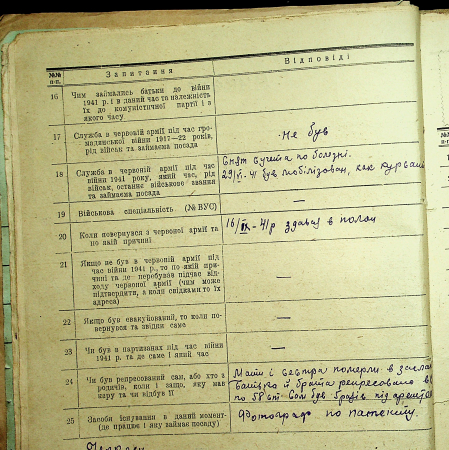 №№ п-п.
Запитання
Відповіді
16
Чим займались батьки до війни
1941 р. і в даний час та належність
їх до комуністичної партії і з
якого часу
17
Служба в червоній армії під час гро-
мадянської війни 1917—22 років,
рід військ та займаема посада
Не був
18
Служба в червоній армії під час
війни 1941 року, який час, рід
військ, останнє військове звання
та займаема посада
учета по болезні.
41 був мобілізован, как
19
Військова спеціальність (№ ВУС)
—
20
Коли повернувся з червоної армії та
по якій причині
16/IX-41р здавсь в полон
21
Якщо не був в червоній армії під
час війни 1941 р., то по якій при-
чині та де перебував підчас від-
ходу червоної армії (чим може
підтвердити, а коли свідками то їх
адреса)
—
22
Якщо був евакуйований, то коли по-
вернувся та звідки саме
—
23
Чи був в партизанах під час війни
1941 р. та де саме і який час
—
24
Чи був репресований сам, або хто з
родичів, коли і защо, яку мав
кару та чи відбув її
Мати і сестра померли в
Батько й брата репресовано
по 58 ст. Сам був під
25
Засоби існування в даний момент
(де працює і яку займає посаду)
Фотограф по патенту.